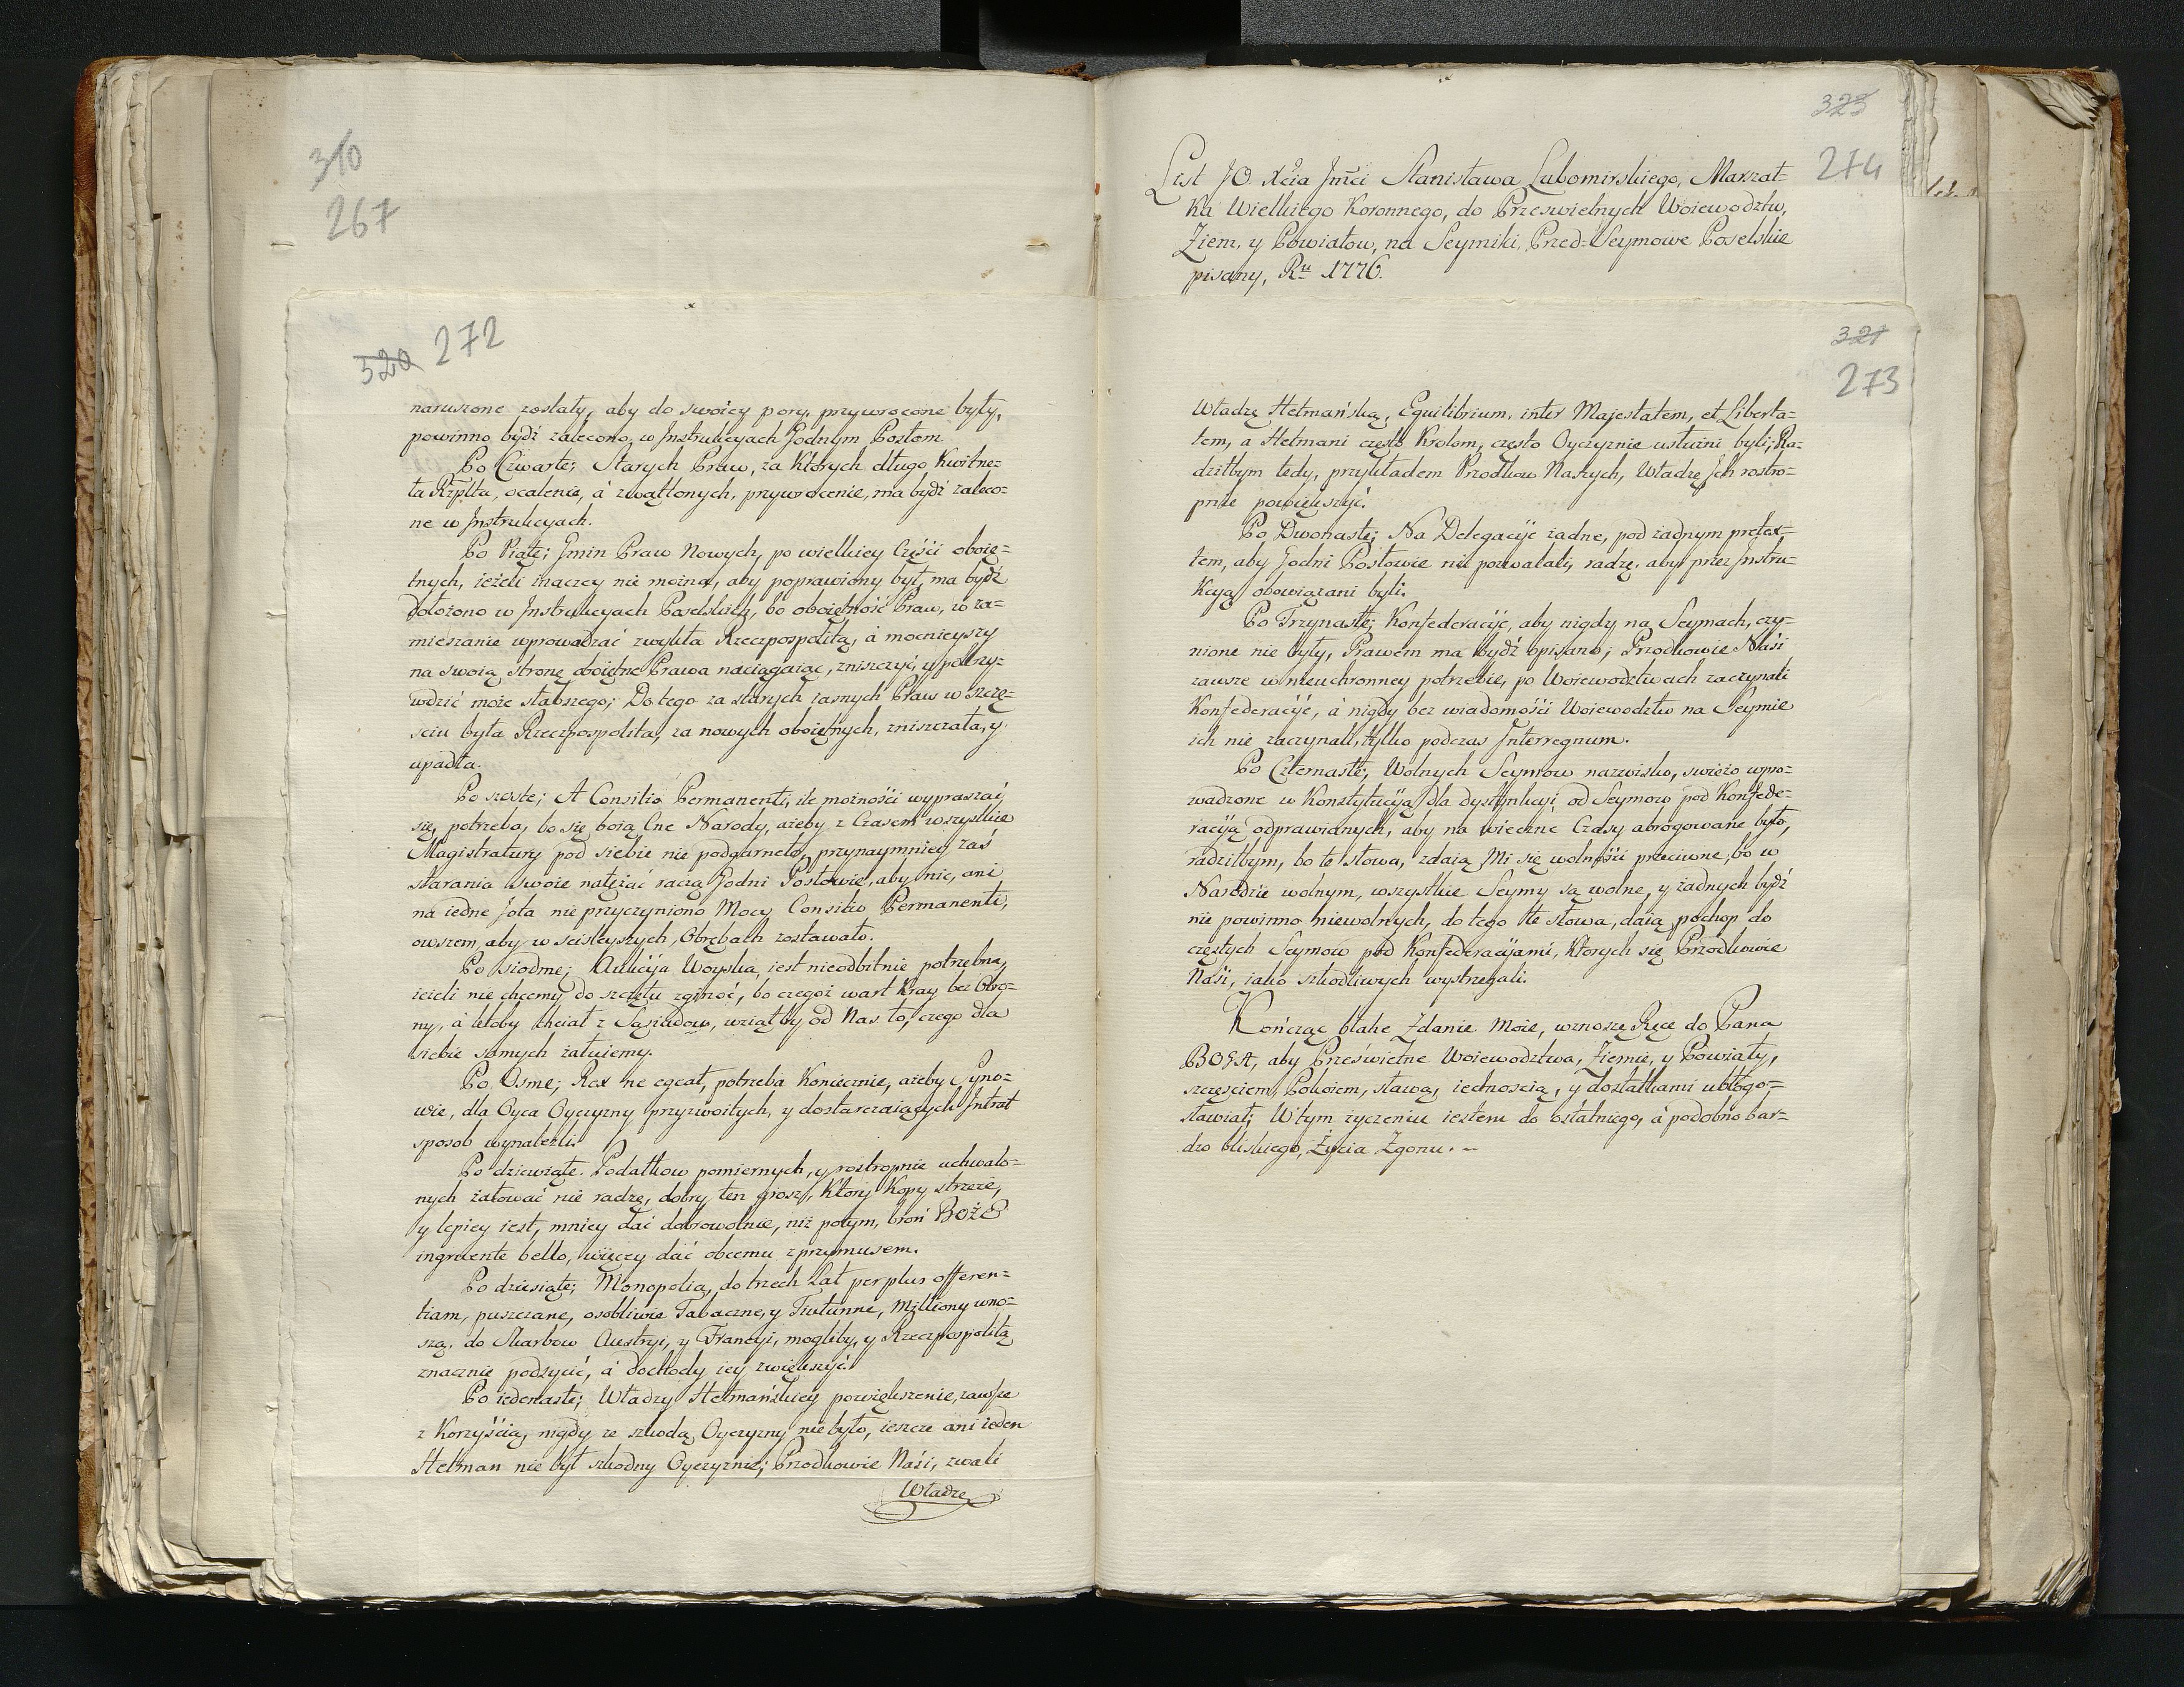 310
267
320 272
naruszone zostały, aby do swoiey pory, przywrocone były,
powinno bydź zalecono, w Instrukcyach Godnym Posłom.
Po Czwarte; Starych Praw, za Ktorych długo Kwitne-
ła Rzplta, ocalenie, á zwątlonych, przywrocenie, ma bydź zaleco-
ne w Instrukcyach.
Po Piąte; Gmin Praw Nowych, po wielkiey Części oboię-
tnych, ieżeli inaczey nie można, aby poprawiony był, ma bydź
dołożono w Instrukcyach Poselskich, bo oboiętność Praw, w za-
mieszanie wprowadzać zwykła Rzeczpospolitą, á mocnieyszy
na swoią stronę oboiętne Prawa naciągaiąc, zniszczyć, y pokrzy-
wdzić może słabszego; Do tego za starych iasnych Praw w szczę-
sciu była Rzeczpospolita, za nowych oboiętnych, zniszczała, y
upadła.
Po szoste; A Consilio Permanenti, ile możności wypraszać
się, potrzeba, bo się boią Cne Narody, ażeby z Czasem wszystkie
Magistratury pod siebie nie podgarneło, przynaymniey zaś
starania swoie natężać raczą Godni Posłowie, aby nic, ani
na iedne Jota nie przyczyniono Mocy Consilio Permanenti,
owszem, aby w scisleyszych, Obrębach zostawało.
Po siodme; Aukcyja Woyska, iest nieodbitnie potrzebna,
ieżeli nie chcemy do szczętu zginąć, bo czegoż wart Kray bez Obro-
ny, á ktoby chciał z Sąsiadow, wziąłby od Nas to, czego dla
siebie samych żałuiemy.
Po Osme; Rex ne egeat, potrzeba Koniecznie, ażeby Syno-
wie, dla Oyca Oyczyzny przyzwoitych, y dostarczaiących Intrat
sposob wynaleźli.
Po dziewiąte. Podatkow pomiernych, y rostropnie uchwalo-
nych żałować nie radzę, dobry ten grosz, Ktory Kopy strzeże,
y lepiey iest, mniey dać dobrowolnie, niż potym, broń BOŻE
ingruente bello, więcey dać obcemu z przymusem.
Po dziesiąte; Monopolia, do trzech Lat per plus offeren-
tiam, puszczane, osobliwie Tabaczne, y Tiutunne, Milliony wno-
szą, do Skarbow Austryi, y Francyi, mogliby, y Rzeczpospolitą
znacznie podsycić, á dochody iey zwiększyć.
Po iedenaste; Władzy Hetmańskiey powiększenie, zawsze
z Korzyścią, nigdy ze szkodą Oyczyzny nie było, ieszcze ani ieden
Hetman nie był szkodny Oyczyznie; Przodkowie Naśi, zwali
Władzę
323
274
List JO. Xcia Jmći Stanisława Lubomirskiego, Marszał-
ka Wielkiego Koronnego, do Przeswietnych Woiewodztw,
Ziem, y Powiatow, na Seymiki, Przed-Seymowe Poselskie
pisany, Ru 1776.
321
273
Władzę Hetmańską, Equilibrium, inter Majestatem, et Liberta-
tem, a Hetmani często Krolom, często Oyczyznie usłużni byli; Ra-
dziłbym tedy, przykładem Przodkow Naszych, Władzę Ich rostro-
pnie powiększyć.
Po Dwonaste; Na Delegacyje żadne, pod żadnym pretex-
tem, aby Godni Posłowie nie pozwalali, radzę, aby przez Instru-
kcyą obowiązani byli.
Po Trzynaste; Konfederacyje, aby nigdy na Seymach, czy-
nione nie były, Prawem ma bydź opisano; Przodkowie Naśi
zawsze w nieuchronney potrzebie, po Woiewodztwach zaczynali
Konfederacyje, á nigdy bez wiadomości Woiewodztw na Seymie
ich nie zaczynali, tylko podczas Interregnum.
Po Czternaste; Wolnych Seymow nazwisko, swieżo wpro-
wadzone w Konstytucyją dla dystynkcyi od Seymow pod Konfede-
racyją odprawianych, aby na wieczne Czasy abrogowane było,
radziłbym, bo te słowa, zdaią Mi się wolności przeciwne, bo w
Narodzie wolnym, wszystkie Seymy są wolne, y żadnych bydź
nie powinno niewolnych, do tego te słowa, daią pochop do
częstych Seymow pod Konfederacyjami, Ktorych się Przodkowie
Naśi, iako szkodliwych wystrzegali.
Kończąc błahe Zdanie Moie, wznoszę Ręce do Pana
BOGA, aby Prześwietne Woiewodztwa, Ziemie, y Powiaty,
szczęsciem, Pokoiem, sławą, iednoscią, y dostatkami ubłogo-
sławiał; W tym życzeniu iestem do ostatniego, á podobno bar-
dzo bliskiego, Życia Zgonu.